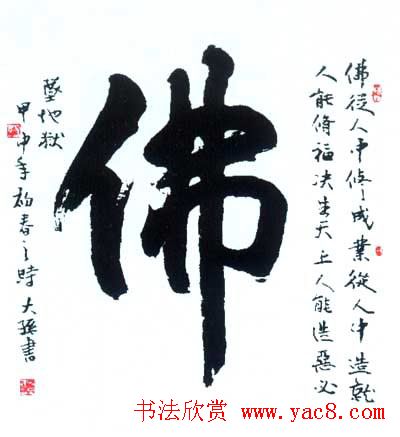 佛從人中修成業從人中造就
人能脩福决生天上人能造惡必
佛
墜地狱
甲申年初春之時大孫書
书法欣赏 www.yac8.com